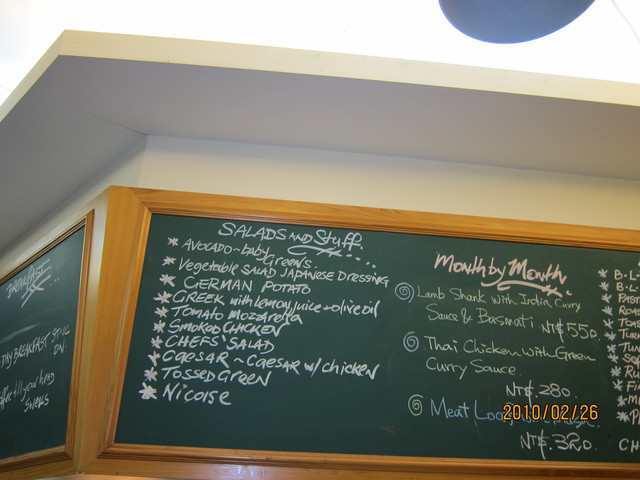 BREAKFAST
DAY BREAKFAST STILL
ON
SALADS AND Stuff.
AVOCADO-baby Greens
Vegetable SALAD JAPANESE DRESSING
GERMAN POTATO
GREEK with lemon juice + olive oil
Tomato mozzarella
Smoked CHICKEN
CHEFS' SALAD
CAESAR ~ CAESAR w/ chicken
TOSSED GREEN
Nicoise
Month by Month
Lamb Shank with India Curry
Sauce & Basmati NT$550.
Thai Chicken with Green
Curry Sauce.
NT$.280.
Meat Loaf
NT$.320.
B-L
B-L
CH
2010/02/26